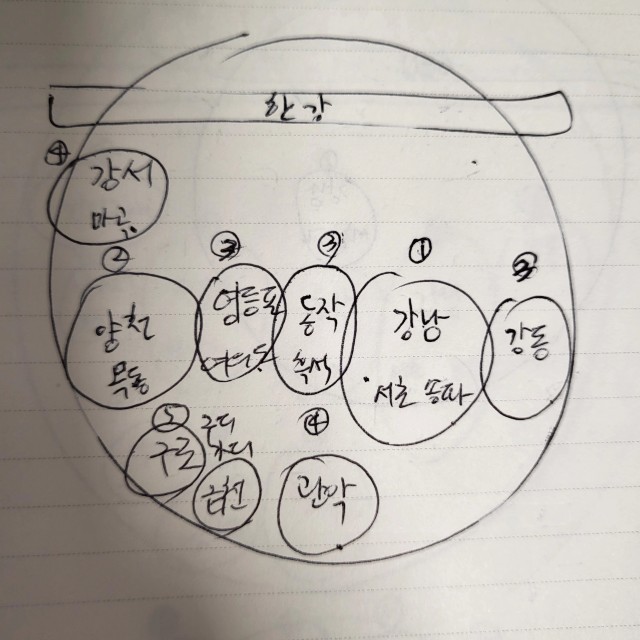 한강
④
강서
마곡
②
③
③
①
③
양천
목동
영등포
여의도
동작
흑석
강남
서초 송파
강동
⑤
구디
가디
④
구로
금천
관악